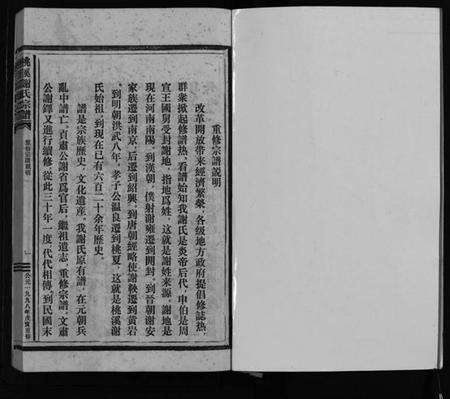 重修宗譜説明
改革開放带来經濟繁榮，各級地方政府提倡修誌熱，
群衆掀起修譜熱，看譜始知我謝氏是炎帝后代，申伯是周
宣王國舅受封謝地，指地爲姓，这就是謝姓来源，謝地是
現在河南南陽，到漢朝，僕射謝雍遷到開封，到晉朝謝安
家族遷到南京，后遷到紹興，到唐朝經略使謝鞅遷到黄岩
，到明朝洪武八年，孝子公温良遷到桃夏，这就是桃溪謝
氏始祖，到現在已有六百二十余年歷史。
譜是宗族歷史，文化遺産，我謝氏原有譜，在元朝兵
亂中譜亡，貞肅公謝省爲官后，繼祖遺志，重修宗譜，文肅
公謝鐸又進行續修，從此三十年一度，代代相傳，到民國末
桃溪謝氏宗譜
重修宗譜説明
一
公元一九九八年戊寅重修